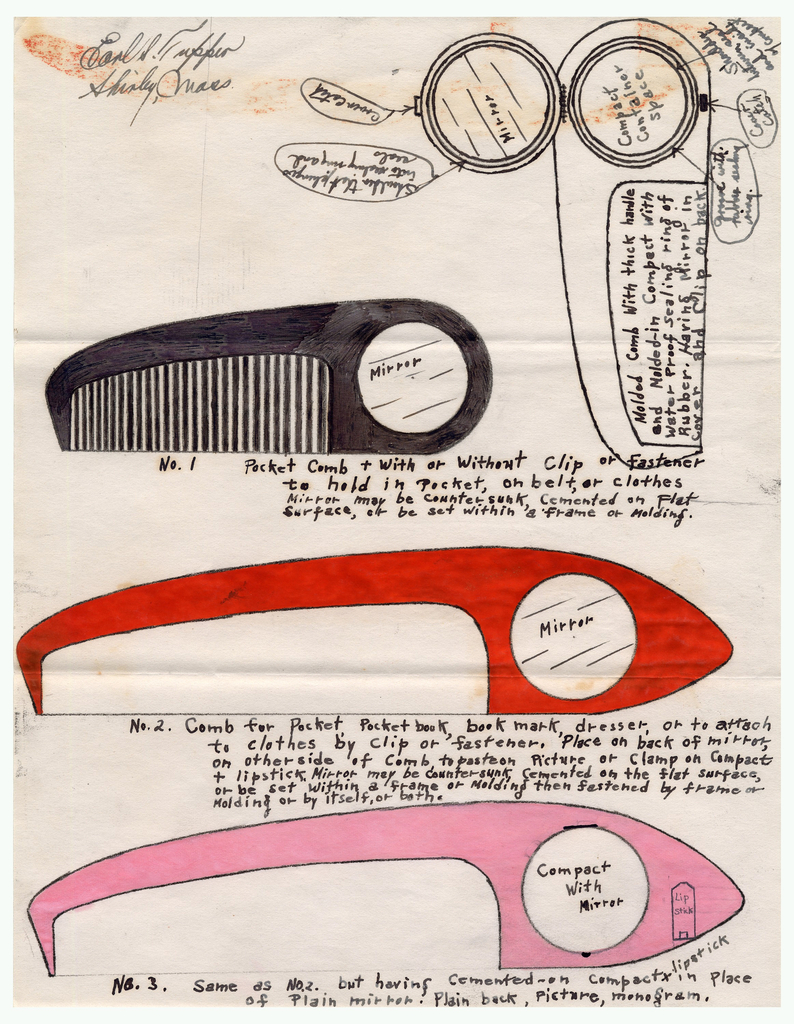 Earl S. Tupper
Shirley, Mass.
Cover Catch
Mirror
Compact
container
space
Cover
catch
groove with
rubber sealing
ring.
Molded Comb With thick handle
and Molded-in Compact With
Water Proof sealing ring of
Rubber. Having Mirror in
cover and Clip on back.
Mirror
No. 1 Pocket Comb + With or Without Clip or fastener
to hold in Pocket, on belt, or clothes
Mirror may be countersunk, Cemented on Flat
Surface, or be set within a frame or Molding.
Mirror
No. 2. Comb for Pocket, Pocket book, book mark, dresser, or to attach
to clothes by Clip or fastener. Place on back of mirror,
on other side of Comb, to paste on Picture or Clamp on Compact
+ lipstick. Mirror may be countersunk, Cemented on the flat surface,
or be set within a frame or Molding then fastened by frame or
Molding or by itself, or both.
Compact
With
Mirror
Lip
Stick
lipstick
No. 3. Same as No.2. but having Cemented-on Compact in Place
of Plain mirror. Plain back, Picture, monogram.